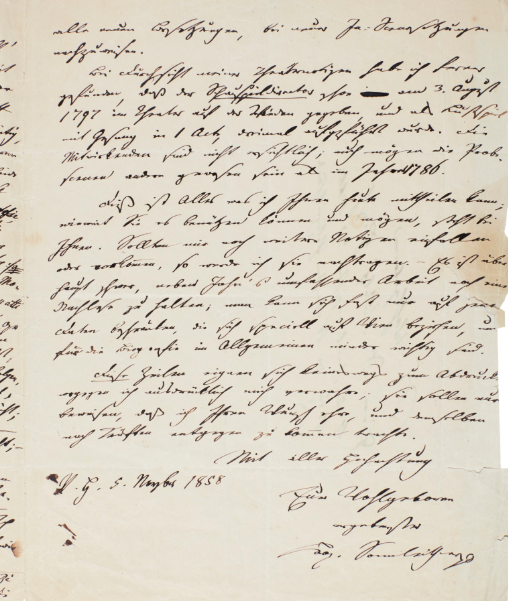 alle neuen Besetzungen, bei neuer In-Scenesetzungen
nachzuweisen.
Bei Durchsicht meiner Theaternotizen habe ich ferner
gefunden, daß der Schauspieldirector schon am 3. August
1797 im Theater auf der Wieden gegeben, und als Lustspiel
mit Gesang in 1 Act dreimal aufgeführt wurde. Die
Mitwirkenden sind nicht ersichtlich; auch mögen die Prob-
scenen andere gewesen sein als im Jahre 1786.
Dieß ist Alles was ich Ihnen heute mittheilen kann;
wieweit Sie es benützen können und mögen, steht bei
Ihnen. Sollten mir noch weitere Notizen einfallen
oder vorkommen, so werde ich sie nachtragen. – Es ist über-
haupt schwer, neben Jahn's umfassender Arbeit noch eine
Nachlese zu halten; man kann sich fast nur auf jene
Daten beschränken, die sich speciell auf Wien beziehen, und
für die Biografie im Allgemeinen minder wichtig sind.
Diese Zeilen eignen sich keineswegs zum Abdruck,
wogegen ich ausdrücklich mich verwahre; sie sollen nur
beweisen, daß ich Ihren Wunsch ehre, und demselben
nach Kräften entgegen zu kommen trachte.
Mit aller Hochachtung
5. 1858
Euer Wohlgeboren
ergebenster
Sonnleithner